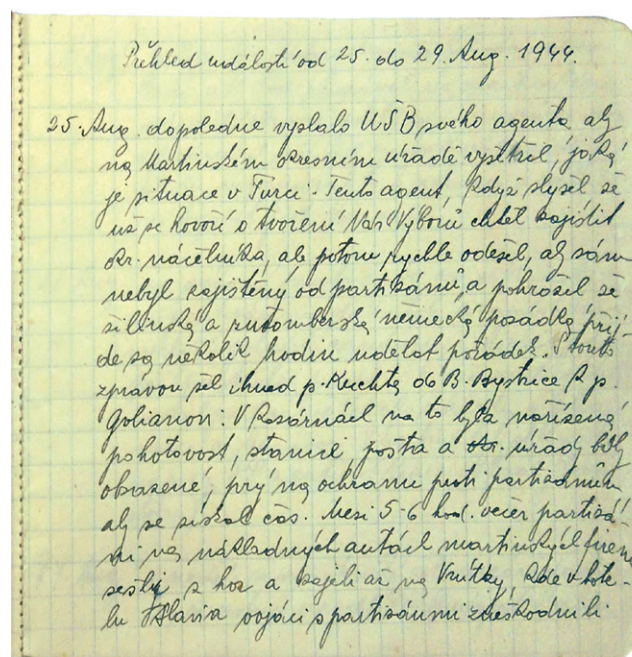 Přehled událostí od 25. do 29. Aug. 1944.
25. Aug. dopoledne vyslalo ÚŠB svého agenta, aby
na Martinském okresním úřadě vyšetřil, jaká
je situace v Turci. Tento agent, když slyšel že
už se hovoří o tvoření Nár. Výborů chtěl zajistit
okr. náčelníka, ale potom rychle odešel, aby sám
nebyl zajištěný od partizánů, a pohrozil že
žilinská a ružomberská německá posádka přij-
de za několik hodin udělat pořádek. S touto
zprávou šel ihned p. Kuchta do B. Bystrice k p.
Golianovi. V kasárnách na to byla nařízena
pohotovost, stanice, pošta a úřady byly
obsazené, prý na ochranu proti partizánům
aby se získal čas. Mezi 5-6 hod. večer partizá-
ni na nákladných autách martinských firem
sešli z hor a zajeli až na Vrútky, kde v hote-
lu Slavia vojáci s partizánmi zneškodnili